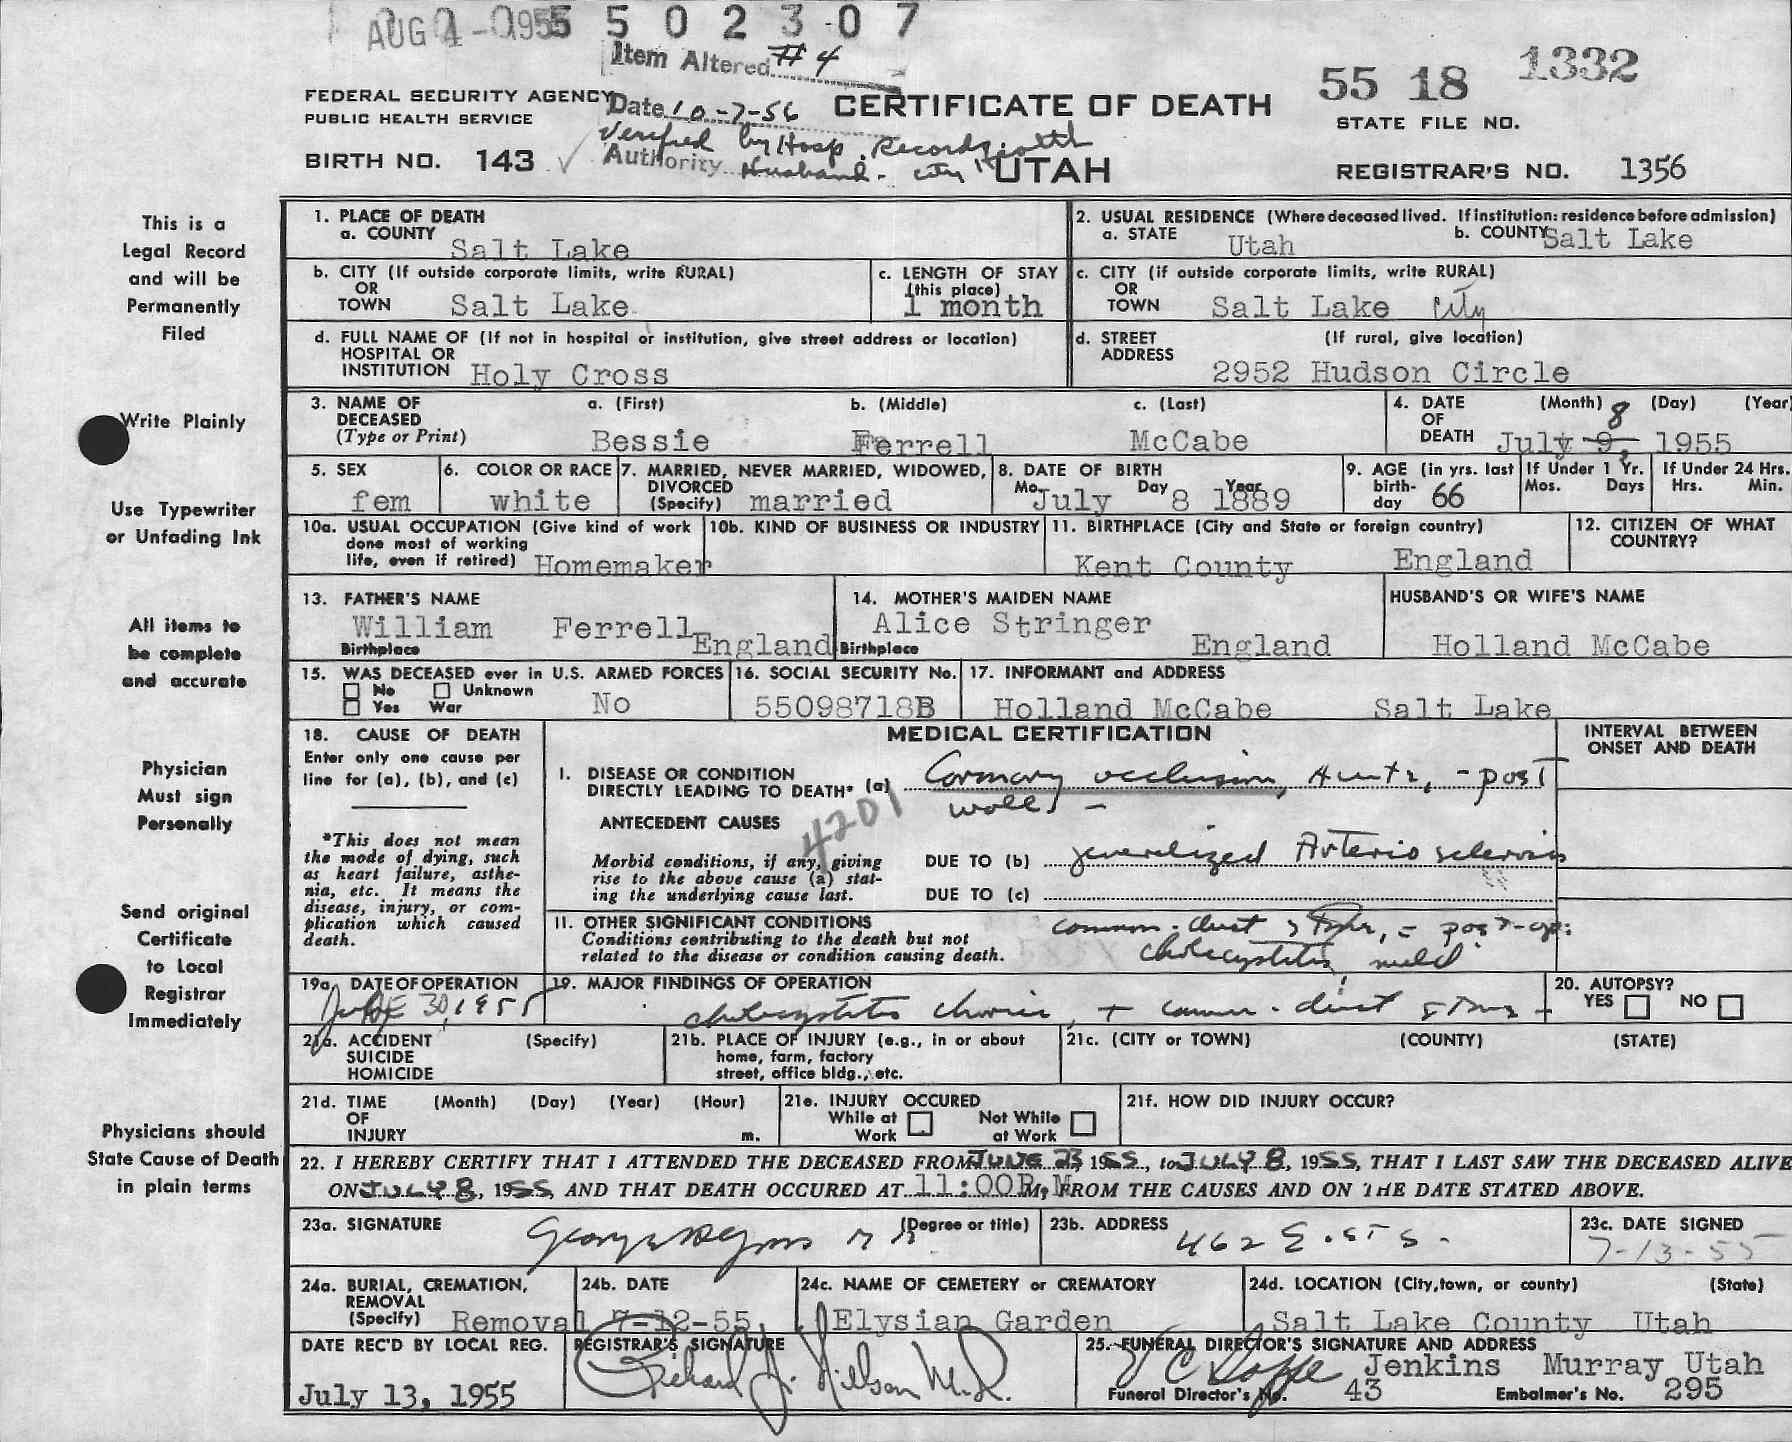 AUG 4 - 1955 5 0 2 3 0 7
Item Altered #4
55 18 1332
FEDERAL SECURITY AGENCY Date 10-7-56 CERTIFICATE OF DEATH
PUBLIC HEALTH SERVICE STATE FILE NO.
Verified by Hosp. Records with
BIRTH NO. 143 Authority Husband - City UTAH REGISTRAR'S NO. 1356
This is a
Legal Record
and will be
Permanently
Filed
Write Plainly
Use Typewriter
or Unfading Ink
All items to
be complete
and accurate
Physician
Must sign
Personally
Send original
Certificate
to Local
Registrar
Immediately
Physicians should
State Cause of Death
in plain terms
1. PLACE OF DEATH
a. COUNTY Salt Lake
2. USUAL RESIDENCE (Where deceased lived. If institution: residence before admission)
a. STATE Utah b. COUNTY Salt Lake
b. CITY (If outside corporate limits, write RURAL)
OR
TOWN Salt Lake
c. LENGTH OF STAY
(this place)
1 month
c. CITY (if outside corporate limits, write RURAL)
OR
TOWN Salt Lake City
d. FULL NAME OF (If not in hospital or institution, give street address or location)
HOSPITAL OR
INSTITUTION Holy Cross
d. STREET (If rural, give location)
ADDRESS
2952 Hudson Circle
3. NAME OF a. (First) b. (Middle) c. (Last)
DECEASED
(Type or Print) Bessie Ferrell McCabe
4. DATE (Month) (Day) (Year)
OF 8
DEATH July 9, 1955
5. SEX
fem
6. COLOR OR RACE
white
7. MARRIED, NEVER MARRIED, WIDOWED,
DIVORCED
(Specify) married
8. DATE OF BIRTH
Mo. Day Year
July 8 1889
9. AGE (in yrs. last
birth-
day 66
If Under 1 Yr.
Mos. Days
If Under 24 Hrs.
Hrs. Min.
10a. USUAL OCCUPATION (Give kind of work
done most of working
life, even if retired) Homemaker
10b. KIND OF BUSINESS OR INDUSTRY
11. BIRTHPLACE (City and State or foreign country)
Kent County England
12. CITIZEN OF WHAT
COUNTRY?
13. FATHER'S NAME
William Ferrell
Birthplace England
14. MOTHER'S MAIDEN NAME
Alice Stringer
Birthplace England
HUSBAND'S OR WIFE'S NAME
Holland McCabe
15. WAS DECEASED ever in U.S. ARMED FORCES
No Unknown
Yes War No
16. SOCIAL SECURITY No.
55098718B
17. INFORMANT and ADDRESS
Holland McCabe Salt Lake
18. CAUSE OF DEATH
Enter only one cause per
line for (a), (b), and (c)
*This does not mean
the mode of dying, such
as heart failure, asthe-
nia, etc. It means the
disease, injury, or com-
plication which caused
death.
MEDICAL CERTIFICATION
INTERVAL BETWEEN
ONSET AND DEATH
I. DISEASE OR CONDITION
DIRECTLY LEADING TO DEATH* (a) Coronary occlusion, Acute, - post
wall -
4201
ANTECEDENT CAUSES
Morbid conditions, if any, giving
rise to the above cause (a) stat-
ing the underlying cause last.
DUE TO (b) generalized Arterio sclerosis
DUE TO (c)
II. OTHER SIGNIFICANT CONDITIONS
Conditions contributing to the death but not
related to the disease or condition causing death.
common duct post-op:
cholecystitis mild
19a. DATE OF OPERATION
June 30, 1955
19. MAJOR FINDINGS OF OPERATION
cholecystitis chronic, + common duct stones
20. AUTOPSY?
YES NO
21a. ACCIDENT (Specify)
SUICIDE
HOMICIDE
21b. PLACE OF INJURY (e.g., in or about
home, farm, factory
street, office bldg., etc.
21c. (CITY or TOWN) (COUNTY) (STATE)
21d. TIME (Month) (Day) (Year) (Hour)
OF
INJURY m.
21e. INJURY OCCURED
While at Not While
Work at Work
21f. HOW DID INJURY OCCUR?
22. I HEREBY CERTIFY THAT I ATTENDED THE DECEASED FROM JUNE 23, 1955, to JULY 8, 1955, THAT I LAST SAW THE DECEASED ALIVE
ON JULY 8, 1955, AND THAT DEATH OCCURED AT 11:00P.M, FROM THE CAUSES AND ON THE DATE STATED ABOVE.
23a. SIGNATURE (Degree or title)
23b. ADDRESS
462 E. 5th S.
23c. DATE SIGNED
7-13-55
24a. BURIAL, CREMATION,
REMOVAL
(Specify) Removal
24b. DATE
7-12-55
24c. NAME OF CEMETERY or CREMATORY
Elysian Garden
24d. LOCATION (City, town, or county) (State)
Salt Lake County Utah
DATE REC'D BY LOCAL REG.
July 13, 1955
REGISTRAR'S SIGNATURE
Richard J. Nilson M.D.
25. FUNERAL DIRECTOR'S SIGNATURE AND ADDRESS
Jenkins Murray Utah
Funeral Director's No. 43 Embalmer's No. 295